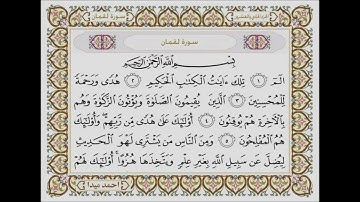 سورة لقمان
سورة لقمان
بِسْمِ اللَّهِ الرَّحْمَٰنِ الرَّحِيمِ
الٓمٓ ۝١ تِلْكَ ءَايَٰتُ الْكِتَٰبِ الْحَكِيمِ ۝٢ هُدًى وَرَحْمَةً
لِّلْمُحْسِنِينَ ۝٣ الَّذِينَ يُقِيمُونَ الصَّلَوٰةَ وَيُؤْتُونَ الزَّكَوٰةَ وَهُم
بِالْءَاخِرَةِ هُمْ يُوقِنُونَ ۝٤ أُو۟لَٰٓئِكَ عَلَىٰ هُدًى مِّن رَّبِّهِمْ ۖ وَأُو۟لَٰٓئِكَ
هُمُ الْمُفْلِحُونَ ۝٥ وَمِنَ النَّاسِ مَن يَشْتَرِى لَهْوَ الْحَدِيثِ
لِيُضِلَّ عَن سَبِيلِ اللَّهِ بِغَيْرِ عِلْمٍ وَيَتَّخِذَهَا هُزُوًا ۚ أُو۟لَٰٓئِكَ لَهُمْ
احمد ميدا